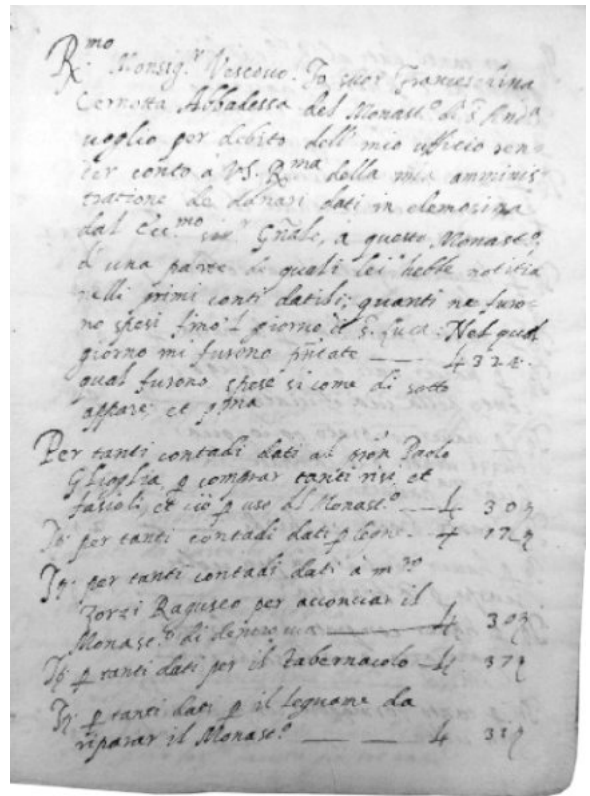 R.mo Monsig.r Vescouo. Io suor Franceschina
Cernotta Abbadessa del Monast.o di S. And.a
uoglio per debito dell' mio ufficio ren=
der conto à VS. R.ma della mia amminis=
tratione de danari dati in elemosina
dal Ecc.mo Gñale, a questo Monast.o,
d' una parte de quali lei hebbe notitia
nelli primi conti datili; quanti ne furo=
no spesi fino 'l giorno di S. Luca: Nel qual
giorno mi furono pñtate —— L 322.
qual furono spese si come di sotto
appare, et p.ma
Per tanti contadi dati ad Paolo
p comprar tanti risi et
fasioli, et ciò p uso del Monast.o — L 30
per tanti contadi dati p legne. L 12
per tanti contadi dati à m.ro
Zorzi Raguseo per acconciar il
Monast.o di dentro L 30
p tanti dati per il Tabernacolo — L 37
p tanti dati p il legname da
riparar il Monast.o —— — L 33